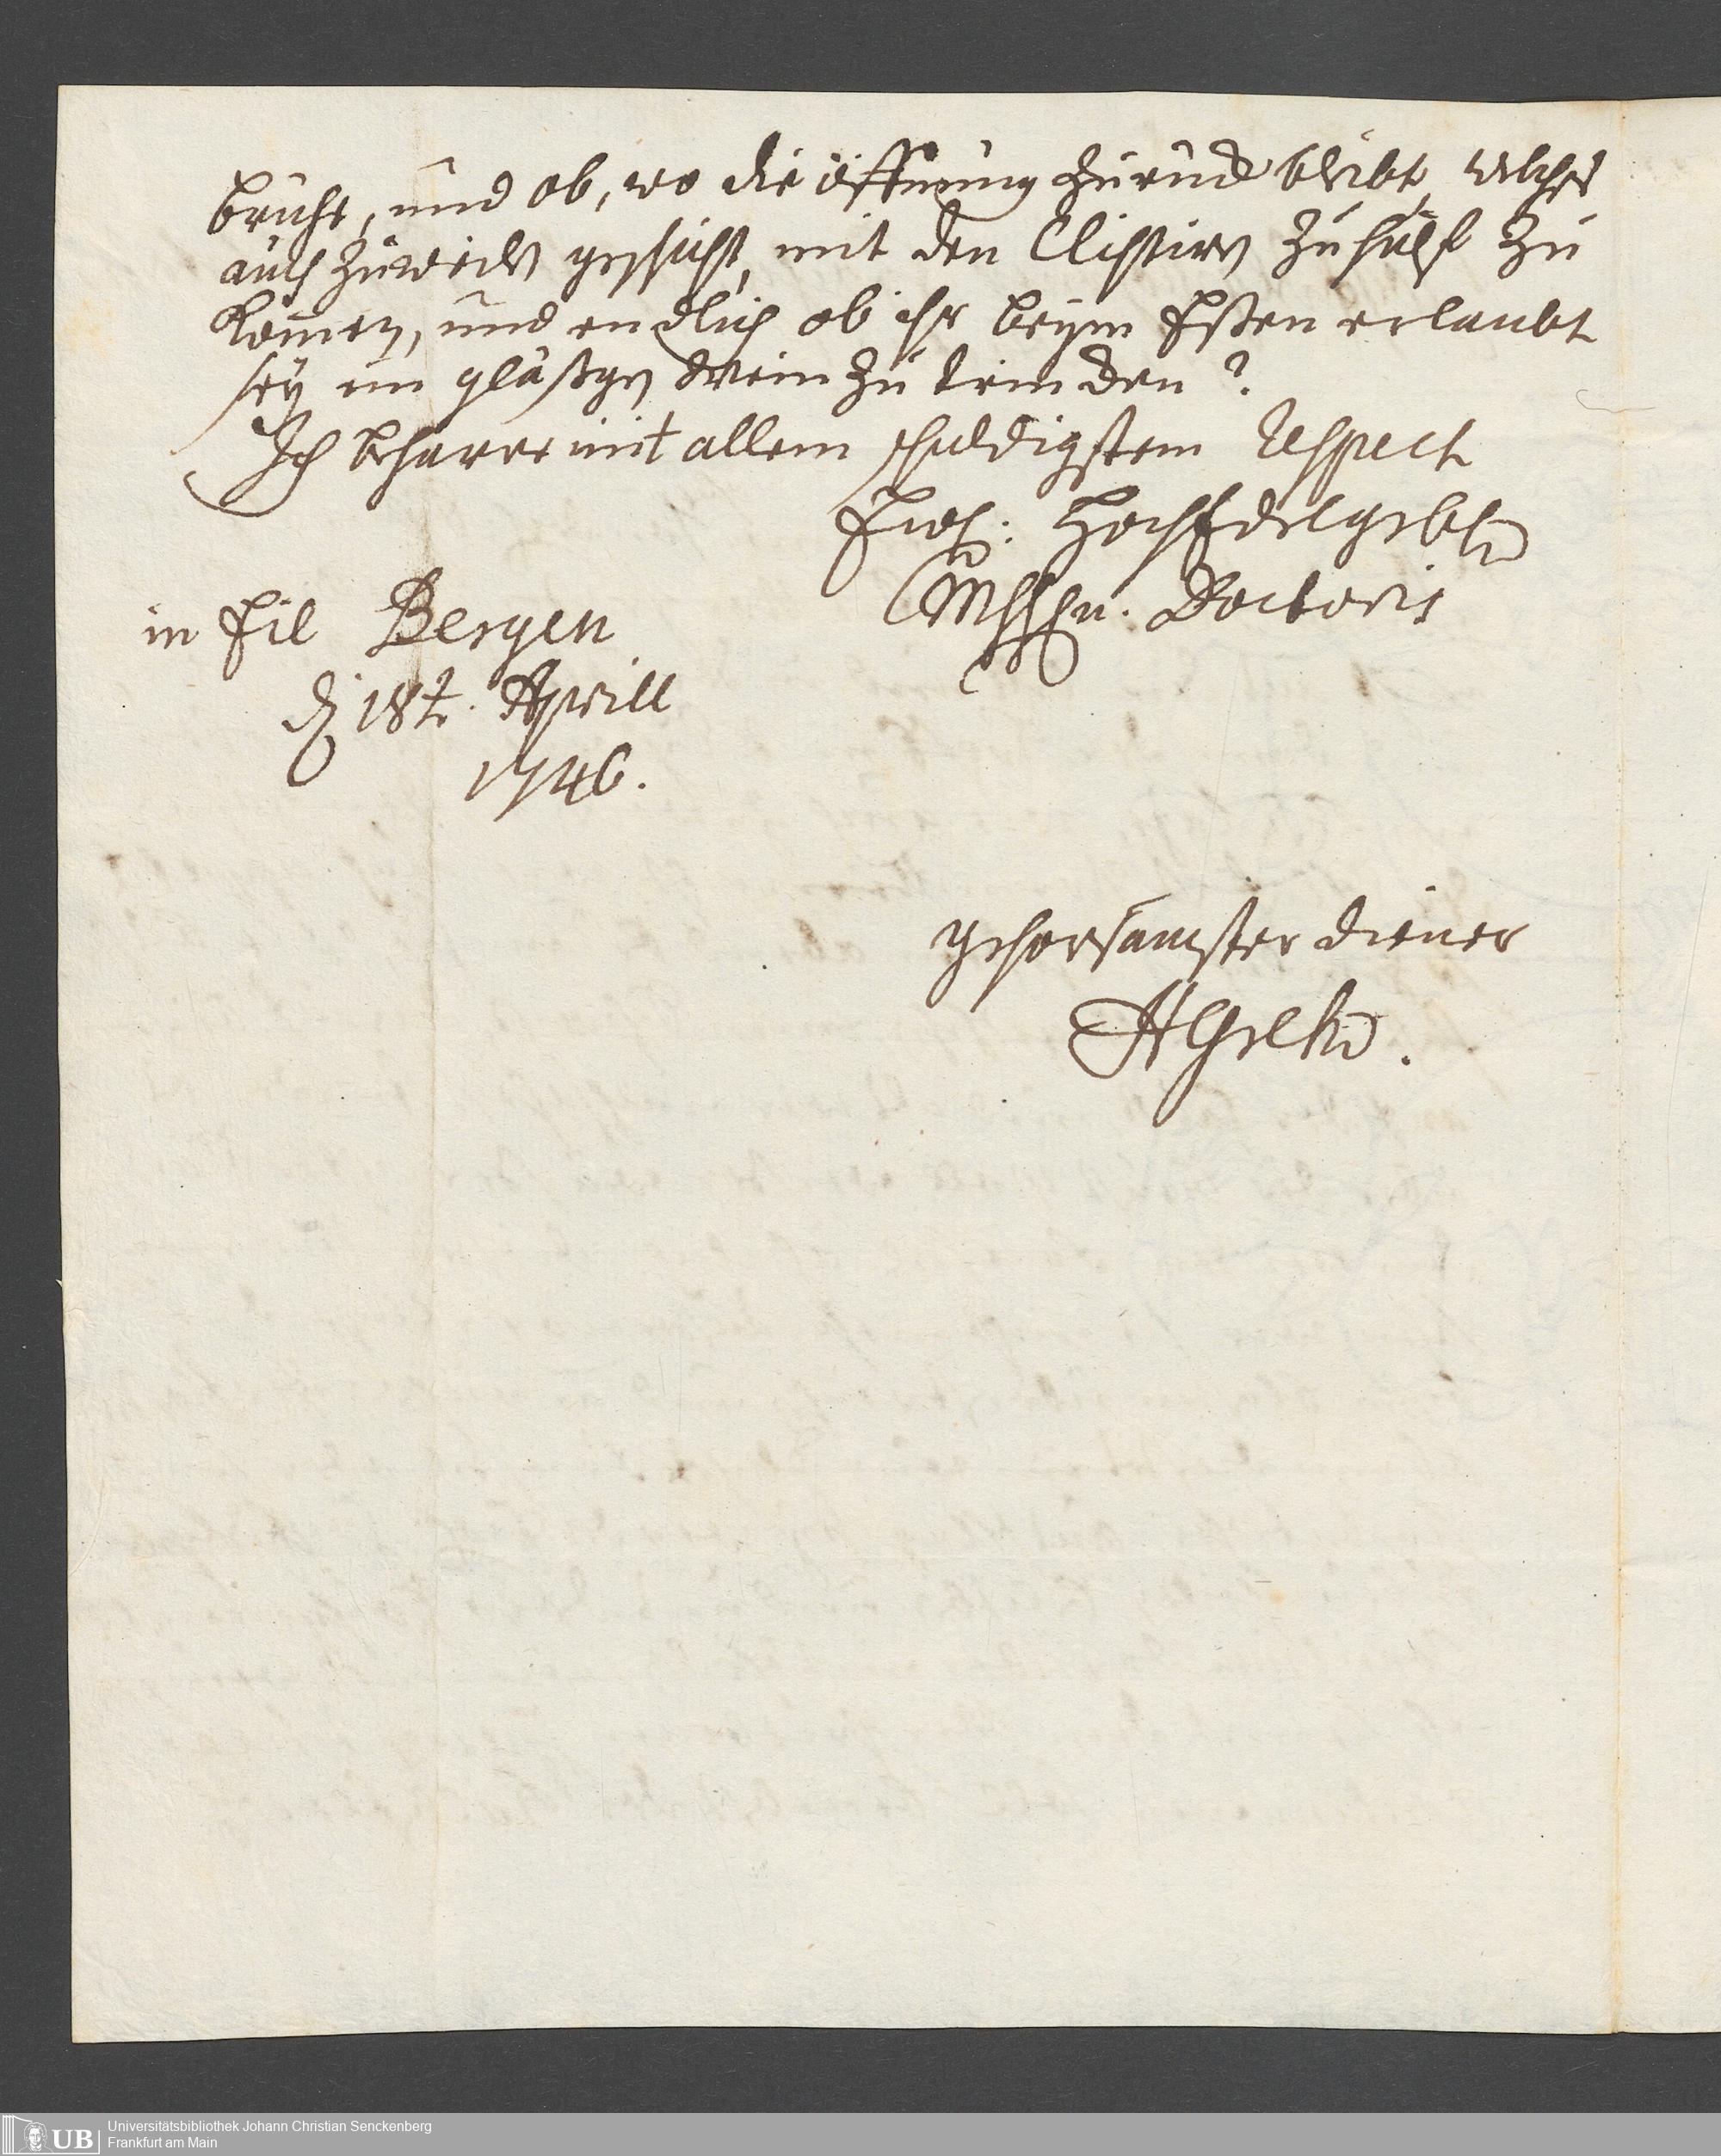 braucht, und ob, wo die öffnung zurück bleibt, welches
auch zuweilen geschicht, mit den Clistiren zu hülf zu
komen, und endlich ob ihr beym Eßen erlaubt
sey ein gläßgen wein zu trincken?
Ich beharre mit allem schuldigstem Respect
Ew: HochEdelgebh
Mhhhn. Doctoris
in Eil Bergen
d 18t. Aprill
1746.
gehorsamster diener
Universitätsbibliothek Johann Christian Senckenberg
Frankfurt am Main
UB